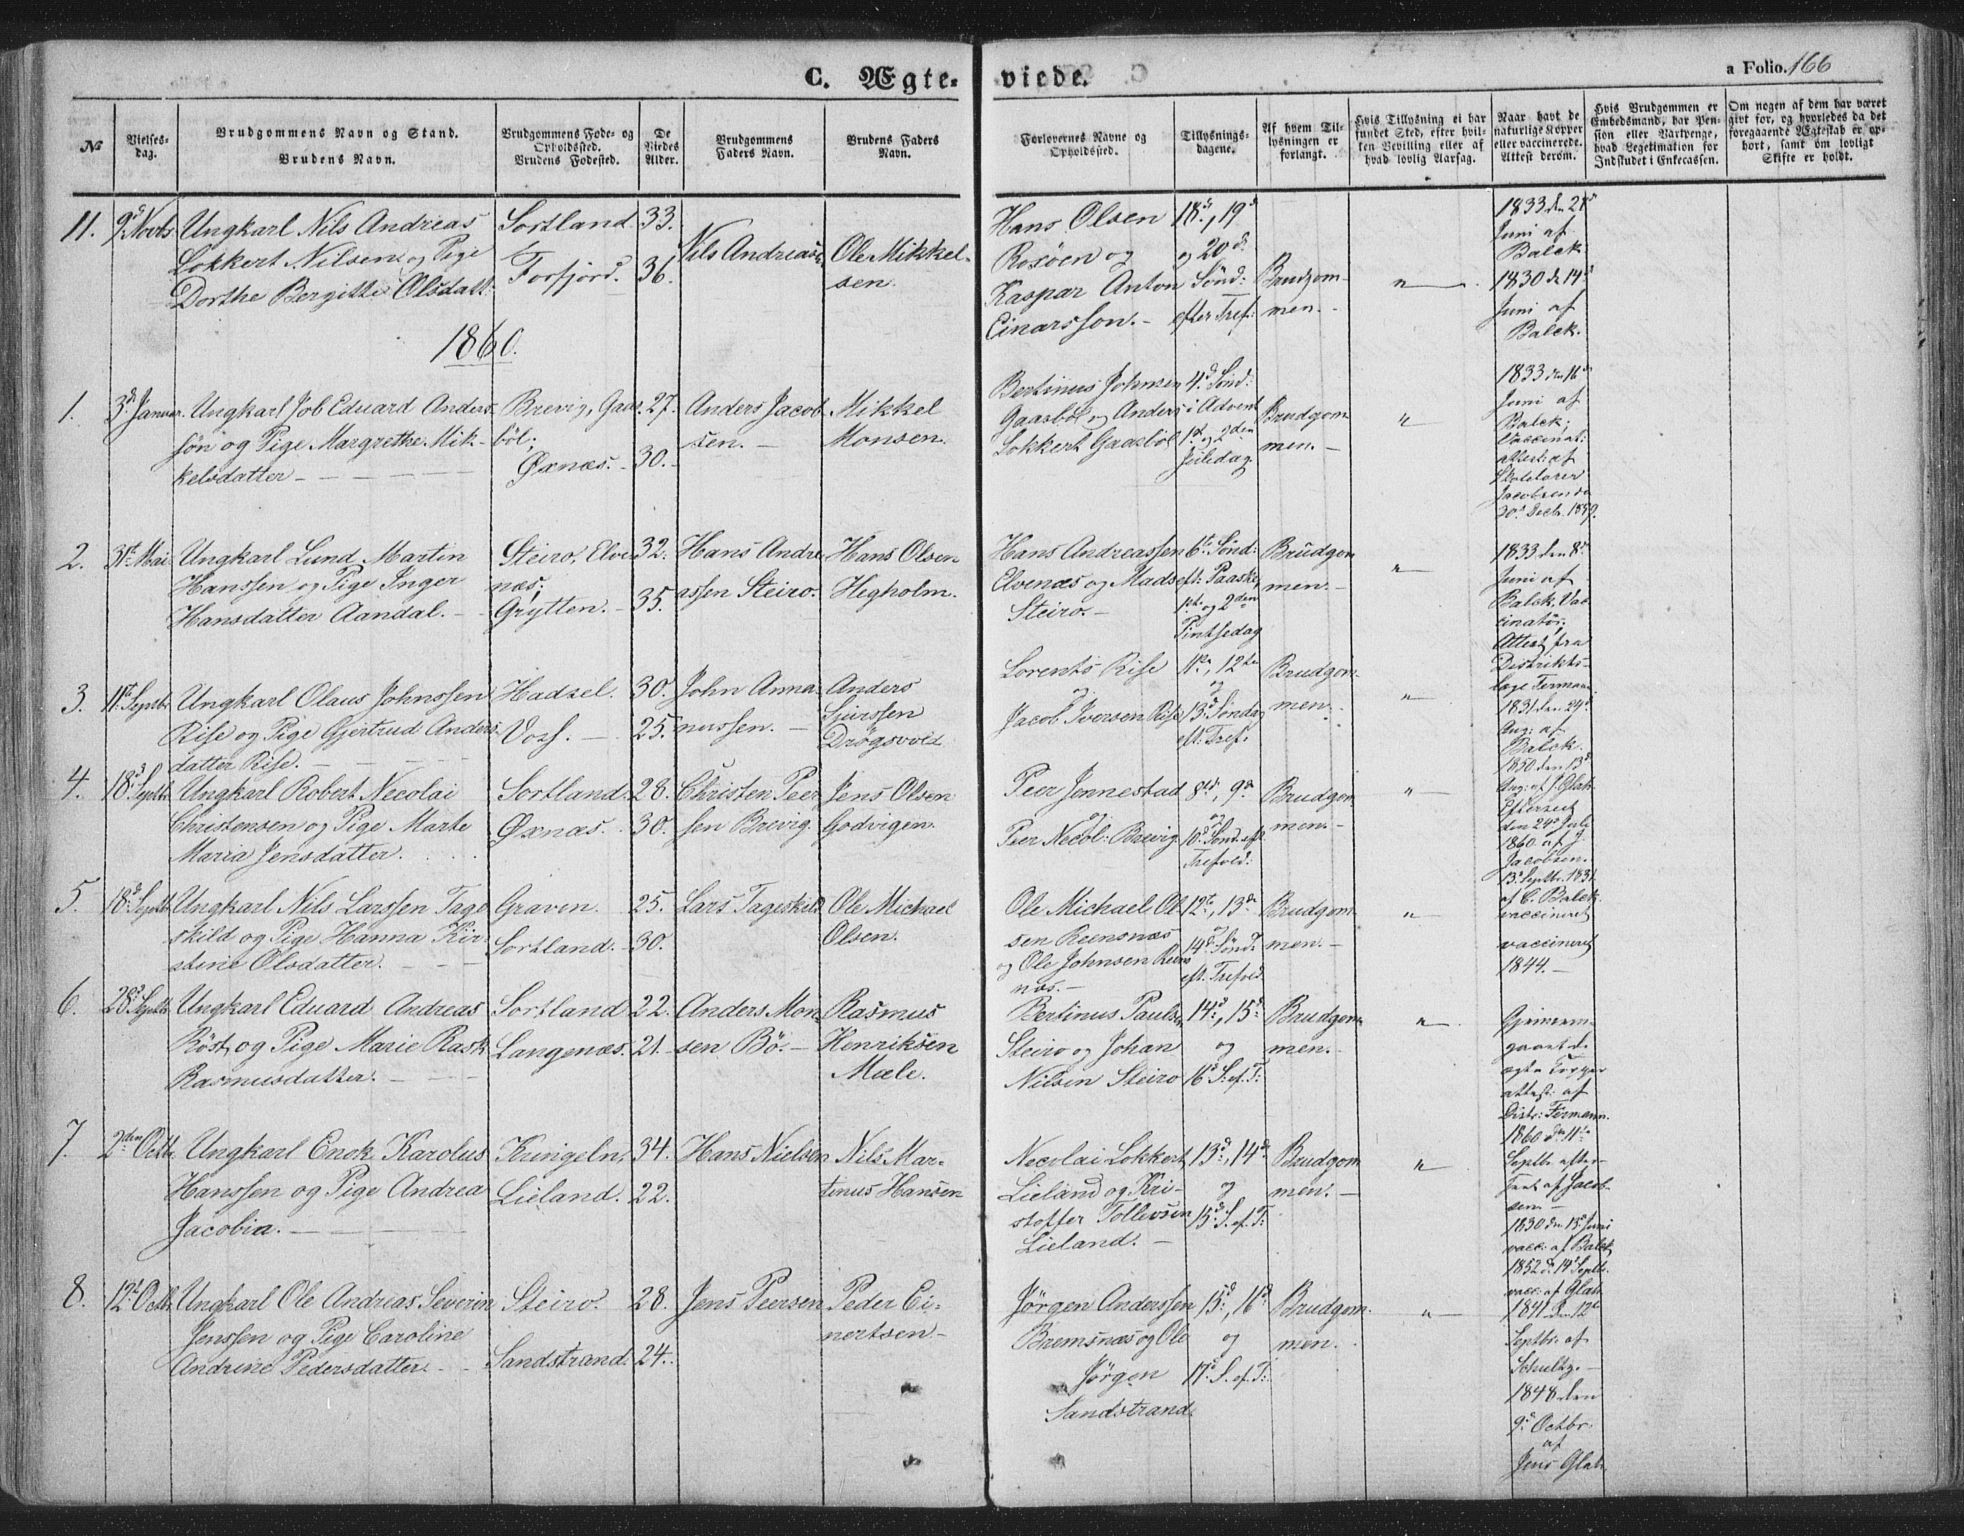 C. Ægte-
viede.
a Folio. 166
№
Vielses-
dag.
Brudgommens Navn og Stand.
Brudens Navn.
Brudgommens Føde- og
Opholdssted.
Brudens Fødested.
De
Viedes
Alder.
Brudgommens
Faders Navn.
Brudens Faders
Navn.
Forlovernes Navne og
Opholdssted.
Tillysnings-
dagene.
Af hvem Til-
lysningen er
forlangt.
Hvis Tillysning ei har
fundet Sted, efter hvil-
ken Bevilling eller af
hvad lovlig Aarsag.
Naar havt de
naturlige Kopper
eller vaccinerede.
Attest derom.
Hvis Brudgommen er
Embedsmand, har Pen-
sion eller Vartpenge,
hvad Legetimation for
Indskudet i Enkecassen.
Om nogen af dem har været
givt for, og hvorledes da det
foregaaende Ægteskab er op-
hørt, samt om lovligt
Skifte er holdt.
11.
9d Novbr
Ungkarl Nils Andreas
Lokkert Nilsen og Pige
Dorthe Bergitte Olsdatt:
Sortland.
Forfjord.
33.
36.
Nils Andreas:
Ole Mikkel-
sen.
Hans Olsen
Rosøen og
Kaspar Anton
Einarsson.-
18d, 19d
og 20d
Sønd:
efter Tref:
Brudgom-
men.-
"
1833 den 28d
Juni af
Balck.
1830 d 14d
Juni af
Balck.
1860.
1.
3d Januar.
Ungkarl Job Eduard Anders-
søn og Pige Margrethe Mik-
kelsdatter -
Brevig, Gaas-
böl;
Øxnæs. -
27.
30.-
Anders Jacob
sen. -
Mikkel
Monsen.
Bertinus Johnsen
Gaasböl og Anders
Lokkert Gaasböl
4d Sønd:
i Advent
1st og 2den
Juledag
Brudgom
men. -
"
1833 den 16d
Juni af
Balck;
Vaccinat:
attest af
Skolelærer
Jacobsen d
30d Decb. 1859.
2.
31t Mai
Ungkarl Lund Martin
Hanssen og Pige Inger
Hansdatter Aandal. -
Steiro, Elve
næs;
Grytten. -
32.
35.
Hans Andre
assen Steiro.
Hans Olsen
Hegholm.
Hans Andreassen
Elvenæs og Mads
Steiro. -
6te Sønd:
eft: Paaske,
1st og 2den
Pintsedag
Brudgom
men. -
"
1833 den 8d
Juni af
Balck. Vac-
cinatør;
Attest fra
Distrikts-
læge Fermann.
3.
11te Septbr
Ungkarl Olaus Johnssen
Rise og Pige Gjertrud Anders-
datter Rise. -
Hadsel.
Voss. -
30.
25.
John Anna-
nussen. -
Anders
Sjurssen
Lorents Rise
og
Jacob Iversen Rise
11te, 12te
og
13d Søndag
eft. Tref.
Brudgom-
men. -
"
1831 den 24d
Aug: af
Balck.
1850 den 13d
Aug: af J. Glah
4.
18d Septbr
Ungkarl Robert Necolai
Christensen og Pige Marte
Maria Jensdatter.
Sortland.
Øxnæs.
28.
30.
Christen Peer
sen Brevig.
Jens Olsen
Godvigen.
Peer Jennestad
og
Peer Necol: Brevig
8de, 9de
og
10d Sønd. eft
Trefold:
Brudgom
men. -
"
den 24d Juli
1860 af J.
Jacobsen.
13d Septbr. 1831
af C. Balck
vaccineret
5.
18d Septbr
Ungkarl Nils Larssen Tage
skild og Pige Hanna Kir-
stine Olsdatter.
Graven.
Sortland.
25.
30.
Lars Tageskild
Ole Michael
Olsen.
Ole Michael Ol-
sen Reensnæs
og Ole Johnsen Reens
næs. -
12te, 13de
og
14d Sønd.
eft. Trefold
Brudgom-
men. -
"
vaccineret
1844. -
6.
28d Septbr.
Ungkarl Eduard Andreas
Röst, og Pige Marie Rask
Rasmusdatter. -
Sortland
Langenæs.
22.
21.
Anders Mon-
sen Bö. -
Rasmus
Henriksen
Mæle.
Bertinus Paulsen
Steiro og Johan
Nilsen Steiro
14d, 15d
og
16d S. ef. T:
Brudgom-
men. -
"
Gjennem-
gaaet de
ægte Kopper
attest: af
Distr: Fermann.
7.
2den Octbr
Ungkarl Enok Karolus
Hanssen og Pige Andrea
Jacobia. -
Kringeln,
Lieland.
34.
22.
Hans Nielsen
Nils Mar-
tinus Hansen
Necolai Lokkert
Lieland og Kri-
stoffer Tollevsen
Lieland. -
13d, 14d
og
15d S. ef. T:
Brudgom
men. -
"
1860 den 11te
Septbr efter
Jacob-
sen -
1830 den 15d Juni
vacc: af Balck
1852 d. 14d Septbr.
vacc: af Glah
8.
12t Octbr
Ungkarl Ole Andreas Severin
Jenssen og Pige Caroline
Andrine Pedersdatter. -
Steiro.
Sandstrand.
28.
24.
Jens Peersen
Peder Ei-
nertsen -
Jørgen Anderssen
Bremsnæs og Ole
Jørgen
Sandstrand.
15d, 16d
og
17d S. ef. T:
Brudgom-
men.
"
1841 d. 12te
Septbr: af
Schultz. -
1848 den
9d Octbr.
af
Jens Glah